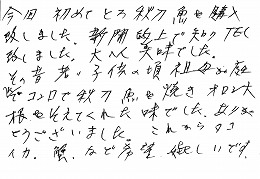 今回 初めて とろ秋刀魚を購入
致しました。新聞紙上で知りTEL
致しました。大へん美味でした。
その昔 子供の頃 祖母が庭
コンロで秋刀魚を焼き オロシ大
根をそえてくれた味でした ありが
とうございました。 これから タコ
イカ、蟹、など希望 嬉しいです。